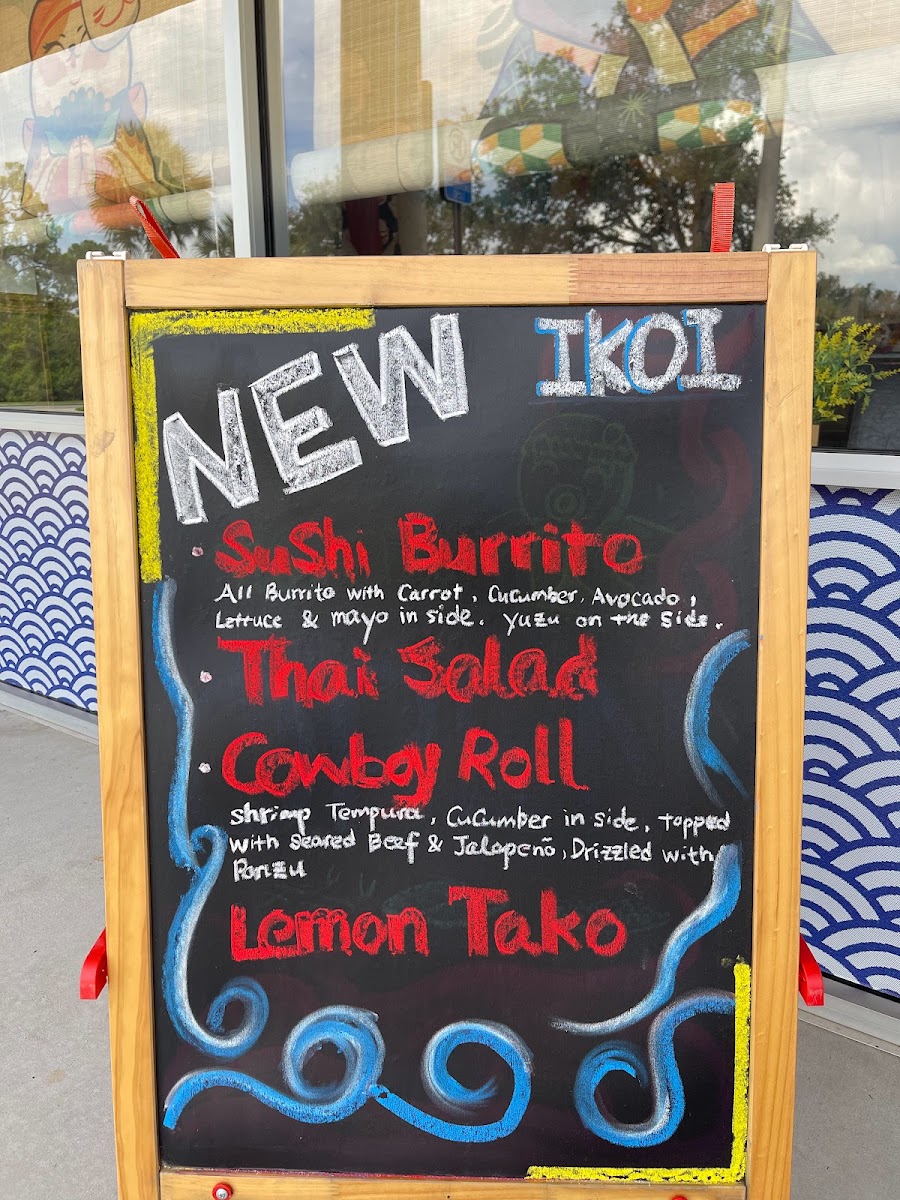 NEW IKOI
Sushi Burrito
All Burrito with Carrot, Cucumber, Avocado,
Lettuce & mayo in side. Yuzu on the Side.
Thai Salad
Cowboy Roll
Shrimp Tempura, Cucumber in side, topped
with Seared Beef & Jalapeño, Drizzled with
Ponzu
Lemon Tako